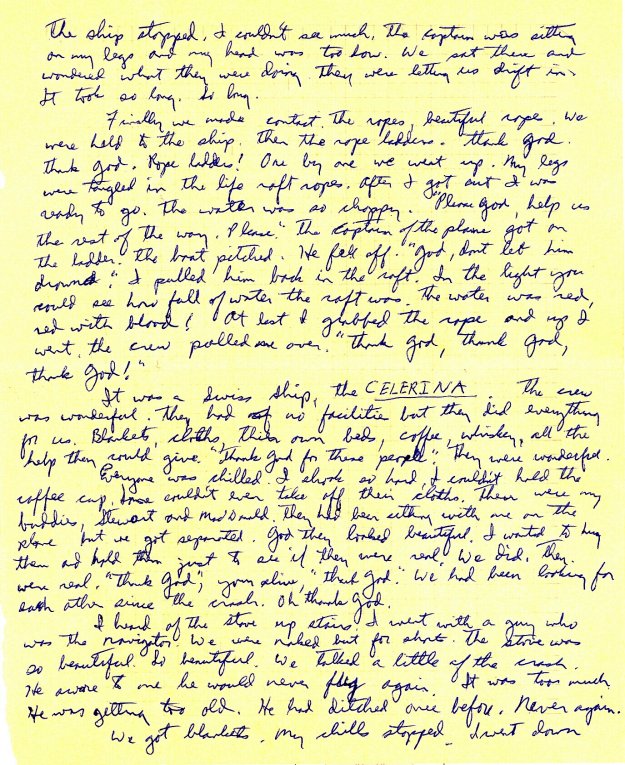 The ship stopped. I couldn't see much, the captain was sitting
on my legs and my head was too low. We sat there and
wondered what they were doing. They were letting us drift in.
It took so long. So long.
Finally we made contact. The ropes, beautiful ropes. We
were held to the ship. Then the rope ladders. Thank God.
Thank God. Rope ladders! One by one we went up. My legs
were tangled in the life raft ropes. After I got out I was
ready to go. The water was so choppy. "Please God, help us
the rest of the way. Please." The captain of the plane got on
the ladder. The boat pitched. He fell off. "God, dont let him
drown." I pulled him back in the raft. In the light you
could see how full of water the raft was. The water was red,
red with blood! At last I grabbed the rope and up I
went. The crew pulled me over. "Thank God, thank God,
thank God!"
It was a Swiss ship, the CELERINA. The crew
was wonderful. They had no facilities but they did everything
for us. Blankets, cloths, their own beds, coffee, whiskey, all the
help they could give. "Thank God for these people." They were wonderful.
Everyone was chilled. I shook so hard I couldn't hold the
coffee cup. Some couldn't even take off their cloths. There were my
buddies, Stewart and MacDonald. They had been sitting with me on the
plane but we got separated. God they looked beautiful. I wanted to hug
them and hold them just to see if they were real. We did. They
were real. "Thank God, your alive, thank God." We had been looking for
each other since the crash. Oh thank God.
I heard of the stove up stairs. I went with a guy who
was the navigator. We were naked but for shorts. The stove was
so beautiful. So beautiful. We talked a little of the crash.
He swore to me he would never fly again. It was too much.
He was getting too old. He had ditched once before. Never again.
We got blankets. My chills stopped. I went down